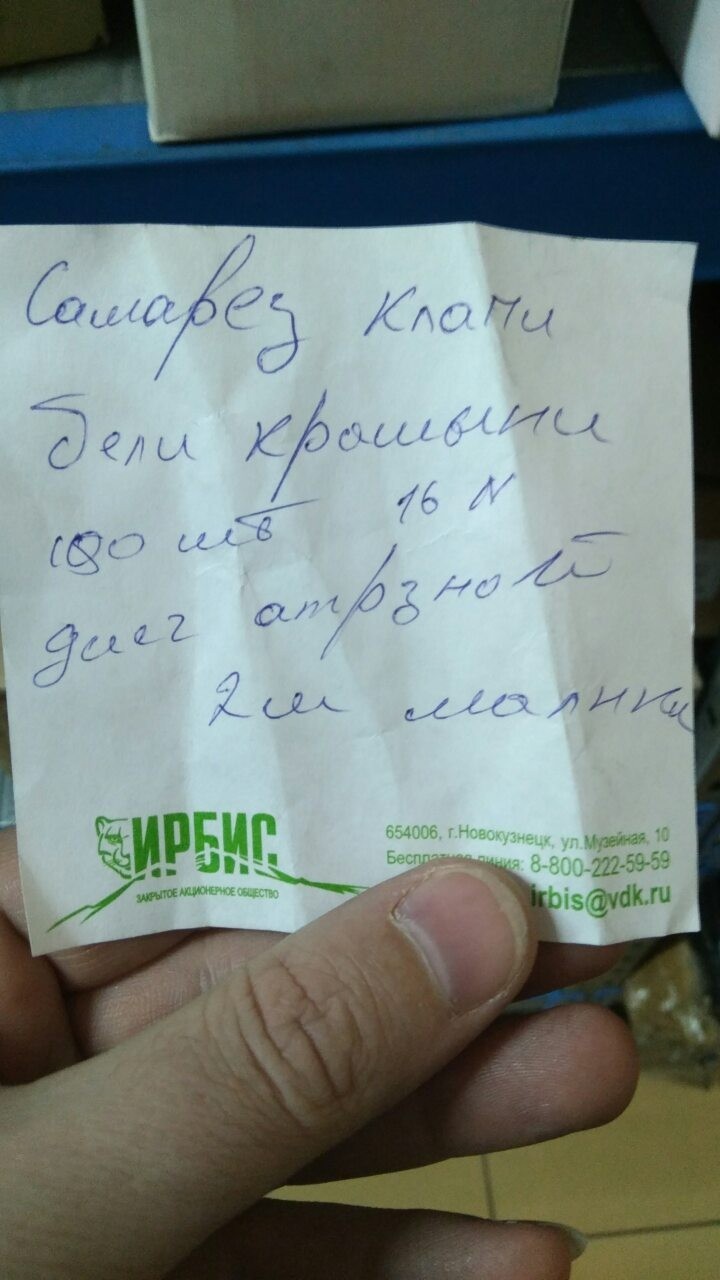 Самарез клапи
бели крашыни
100 шт 16 N
диег атрзной
2ш малнки
ИРБИС
ЗАКРЫТОЕ АКЦИОНЕРНОЕ ОБЩЕСТВО
654006, г.Новокузнецк, ул.Музейная, 10
Бесплатная линия: 8-800-222-59-59
irbis@vdk.ru